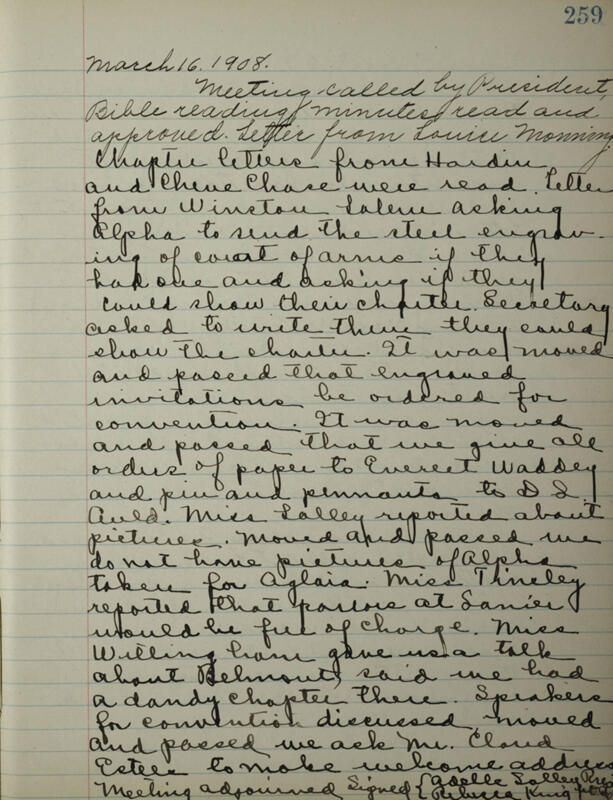 259
March 16, 1908.
Meeting called by President,
Bible reading, minutes read and
approved. Letter from Louise Monning,
Chapter letters from Hardin
and Cheve Chase were read. Letter
from Winston Salem asking
Alpha to send the steel engrav-
ing of coat of arms if they
had one and asking if they
could show their charter. Secretary
asked to write them they could
show the charter. It was moved
and passed that engraved
invitations be ordered for
convention. It was moved
and passed that we give all
orders of paper to Everett Waddey
and pin and pennants to D. L.
Auld. Miss Salley reported about
pictures. Moved and passed we
do not have pictures of Alpha
taken for Aglaia. Miss Tinsley
reported that parlors at Lanier
would be free of charge. Miss
Willingham gave us a talk
about Belmont, said we had
a dandy chapter there. Speakers
for convention discussed, moved
and passed we ask Mr. Claud
Estes to make welcome address
Meeting adjourned Signed { Adelle Salley Pres
Rebecca King